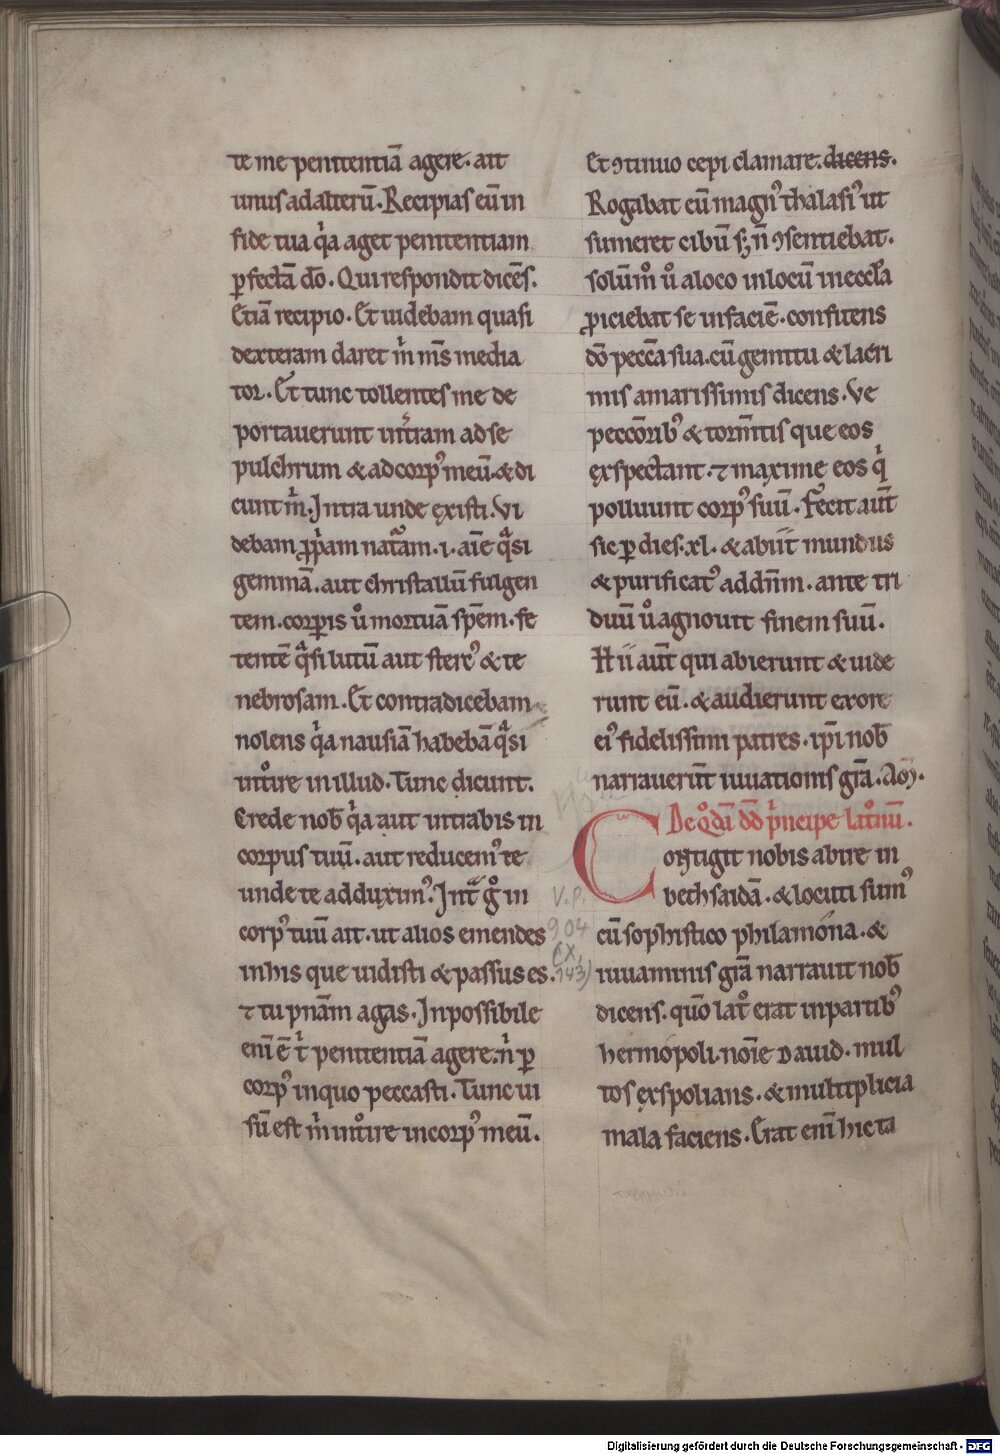 te me penitentiā agere. ait
unus ad alterū. Recipias eū in
fide tua q̇a aget penitentiam
ꝑfectā dō. Qui respondit dicēs.
Etiā recipio. Et uidebam quasi
dexteram daret ṁ m̄s media
tor. Et tunc tollentes me de
portauerunt int̓ram ad se
pulchrum & ad corpꝰ meū. & di
cunt ṁ. Intra unde ęxisti. Vi
debam ꝓpͥam natᷓam .i. aīe qᷓsi
gemmā. aut christallū fulgen
tem. corꝑis u̇ mortuā spēm. fe
tentē qᷓsi lutū aut sterꝰ & te
nebrosam. Et contradicebam
nolens q̇a nausiā habebā qᷓsi
intͦire in illud. Tunc dicunt.
Crede nob̄ q̇a aut intrabis in
corpus tuū. aut reducemꝰ te
unde te adduximꝰ. Intᷓ gͦ in
corpꝰ tuū ait. ut alios emendes
in his que uidisti & passus es.
⁊ tu pn̄am agas. Inpossibile
enī ē t̓ penitentiā agere. nͥ ꝑ
corpꝰ in quo peccasti. Tunc ui
sū est ṁ intͦire in corpꝰ meū.
Et ꝯtinuo cepi clamare. dicens.
Rogabat eū magnꝰ thalasiꝰ ut
sumeret cibū sꝫ n̄ ꝯsentiebat.
solūmͦ uͦ a loco in locū in eccl̄a
ꝓiciebat se in faciē. confitens
dō pecc̄a sua. cū gemitu & lacri
mis amarissimis dicens. Ve
peccōribꝰ & torm̄tis que eos
ęxspectant. ⁊ maxime eos qͥ
polluunt corpꝰ suū. Fecit aūt
sic ꝑ dies .xl. & abiit mundus
& purificatꝰ ad dn̄m. ante tri
duū uͦ agnouit finem suū.
Hii aūt qui abierunt & uide
runt eū. & audierunt ex ore
eiꝰ fidelissimi patres. ip̄i nob̄
narrauerūt iuuationis gr̄a.
De qͦdā dd̄ pͥncipe latͦnū.
Contigit nobis abire in
bethsaidā. & locuti sumꝰ
cū sophistico philamona. &
iuuaminis gr̄a narrauit nob̄
dicens. quō latͦ erat in partibꝰ
hermopoli. noīe dauid. mul
tos ęxspolians. & multiplicia
mala faciens. Erat enī hic ta
V.P.
904
Digitalisierung gefördert durch die Deutsche Forschungsgemeinschaft - DFG